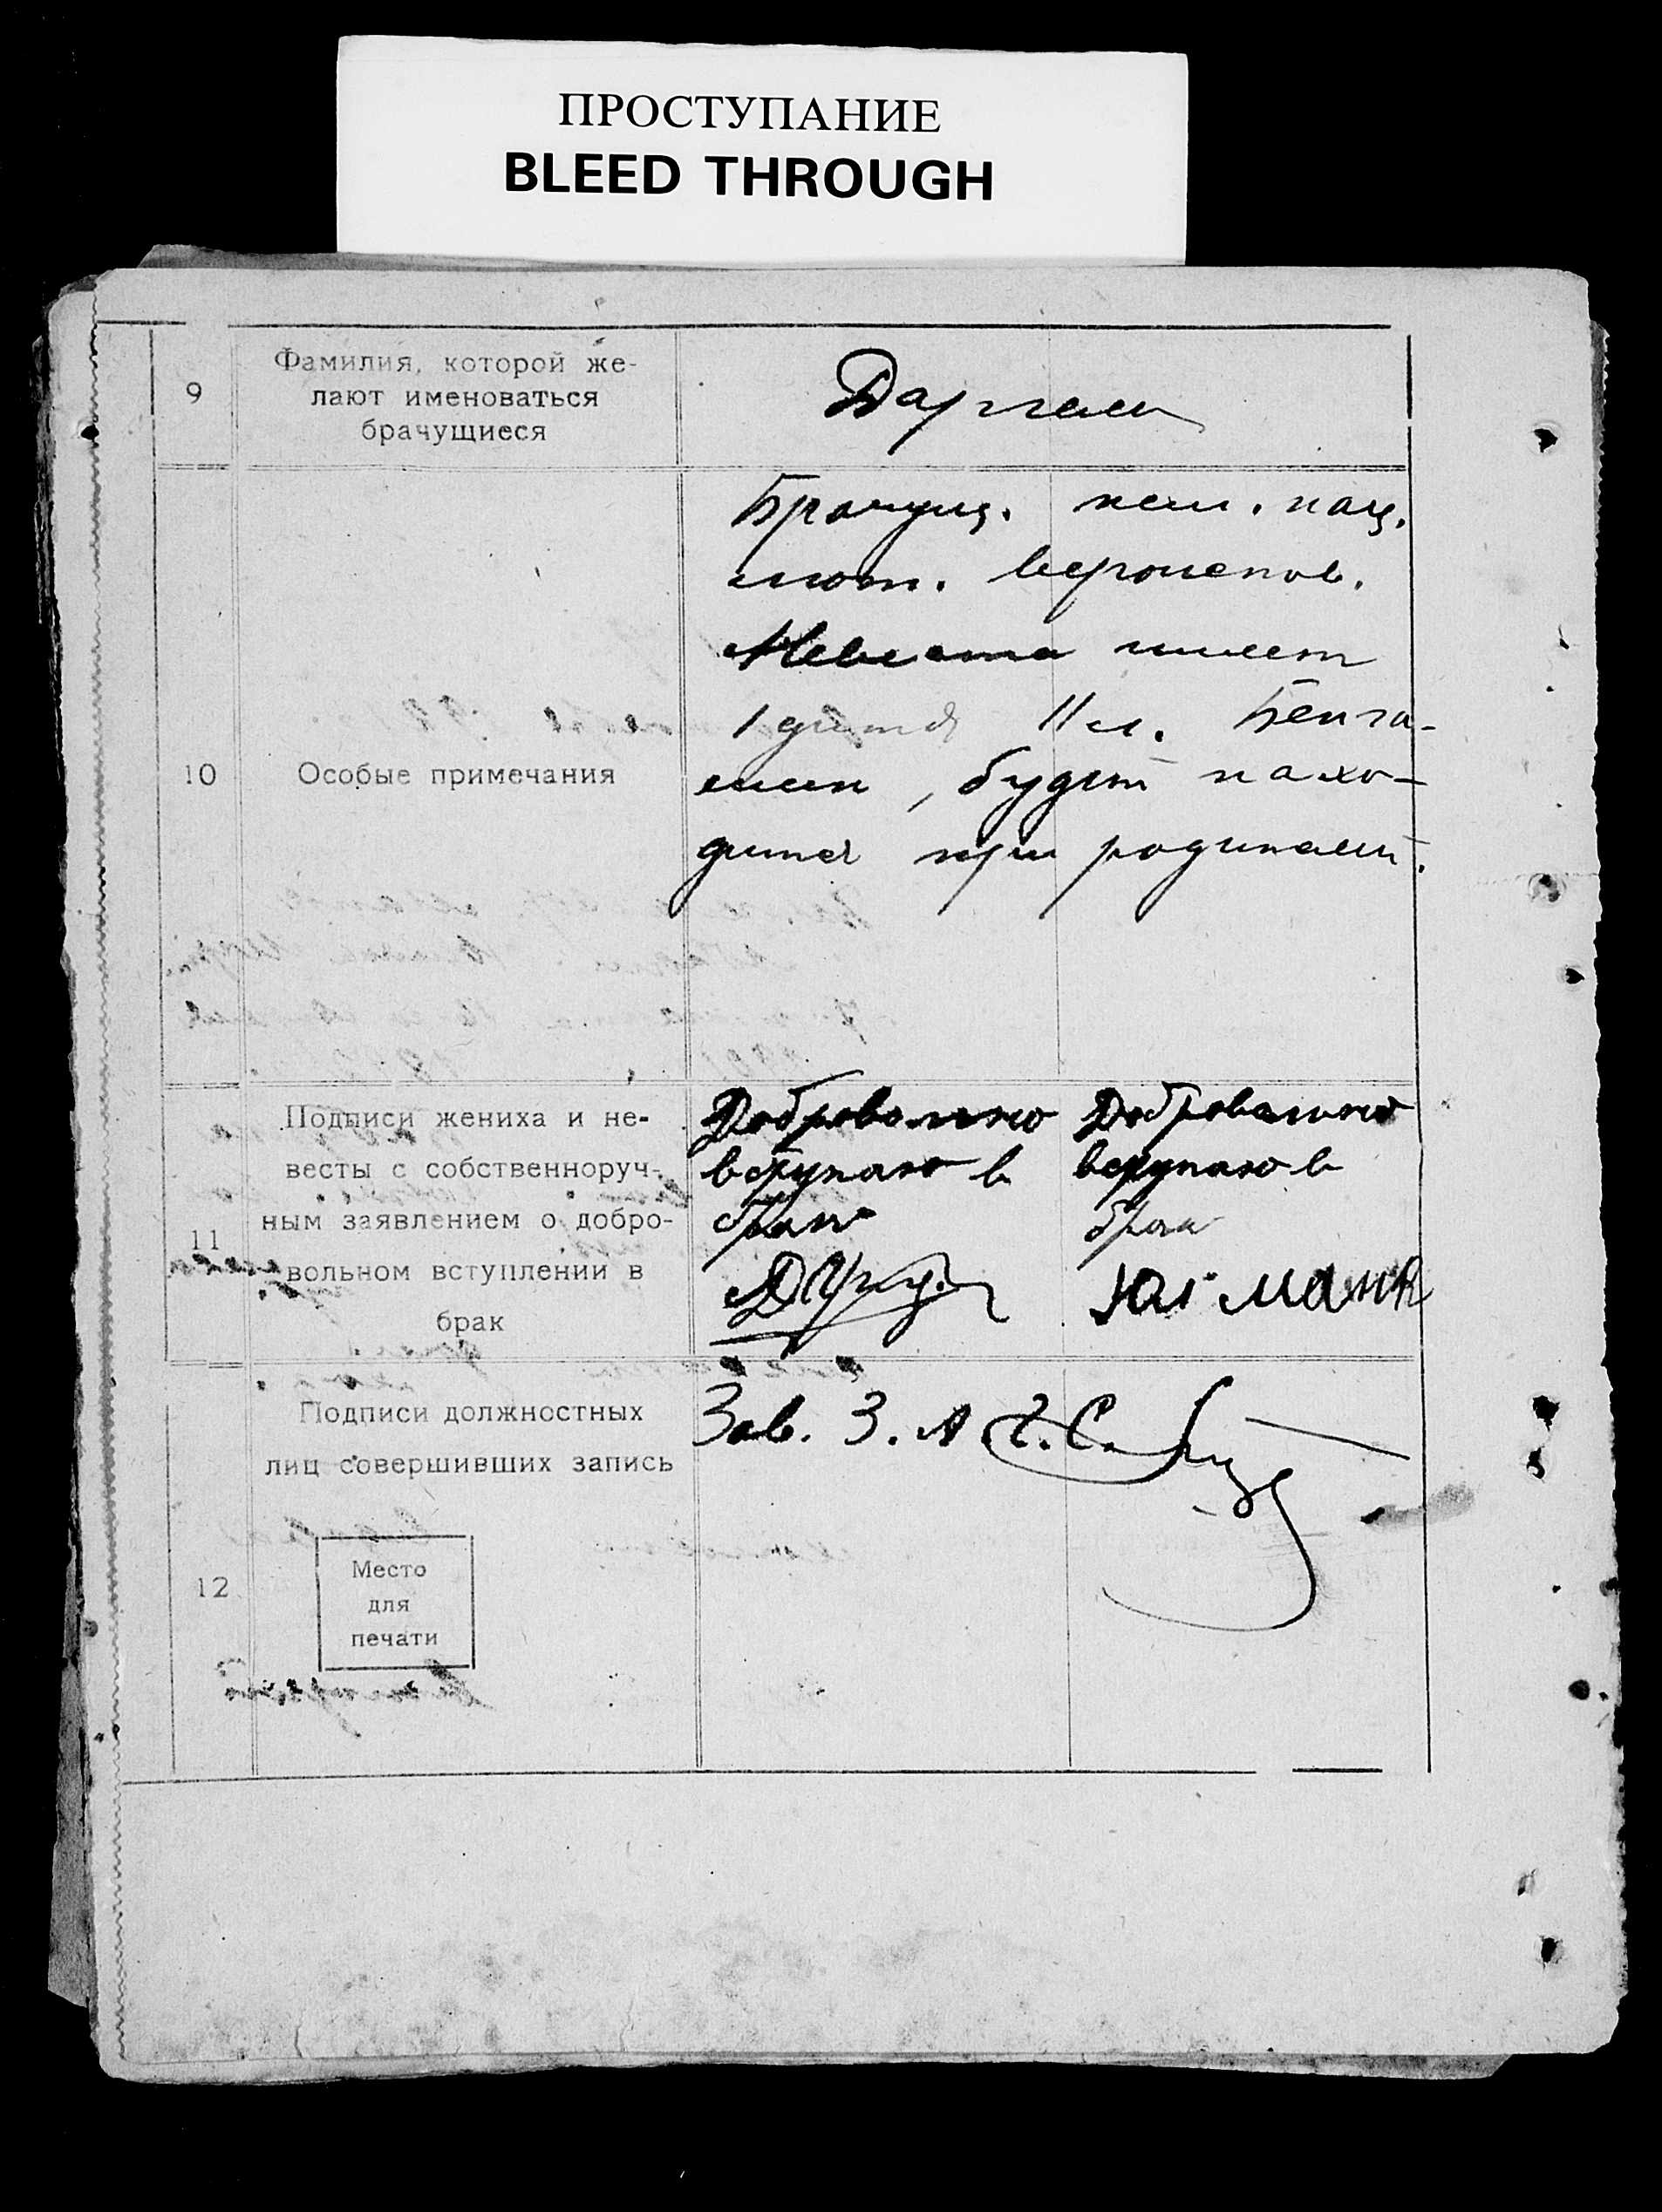 ПРОСТУПАНИЕ
BLEED THROUGH
9
Фамилия, которой же-
лают именоваться
брачущиеся
Брачущ. нем. нац.
лют. вероиспов.
Невеста имеет
1 дитя 11 л. Бенга-
мин, будет нахо-
дится при родителях.
10
Особые примечания
11
Подписи жениха и не-
весты с собственноруч-
ным заявлением о добро-
вольном вступлении в
брак
Добровольно
вступаю в
брак
Добровольно
вступаю в
брак
12
Подписи должностных
лиц совершивших запись
Зав. З.А.Г.С.
Место
для
печати